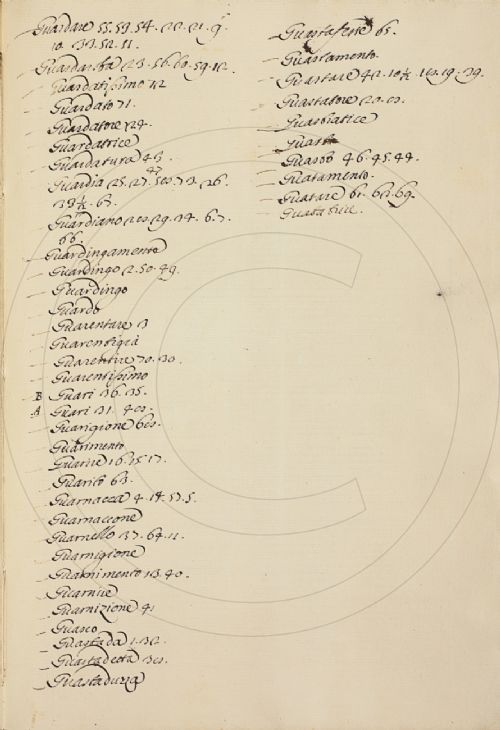 Guardare 55. 59. 54. 22. 21. 9.
10. 33. 52. 11.
Guardaroba 23. 56. 60. 59. 12.
Guardatissimo 42
Guardato 71.
Guardatore 24.
Guardatrice
Guardatura 43.
47
Guardia 25. 27. 73. 26.
67.
Guardiano 29. 34. 6. 7.
66.
Guardingamente
Guardingo 2. 50. 49.
Guardingo
Guardo
Guarentare 3
Guarentigia
Guarentire 70. 30.
Guarentissimo
B Guari 36. 35.
A Guari 31.
Guarigione
Guarimento
Guarire 16. 15. 17.
Guarito 63.
Guarnacca 4. 18. 53. 5.
Guarnaccone
Guarnello 37. 64. 11.
Guarnigione
Guarnimento 13. 40.
Guarnire
Guarnizione 41
Guasco
Guastada 1. 32.
Guastadetta
Guastaduzza
Guastaferre 65.
Guastamento.
Guastare 42. 19. 39.
Guastatore
Guastatrice
Guasto
Guasto 46. 45. 44.
Guatamento.
Guatare 61. 62. 69.
Guatatrice.